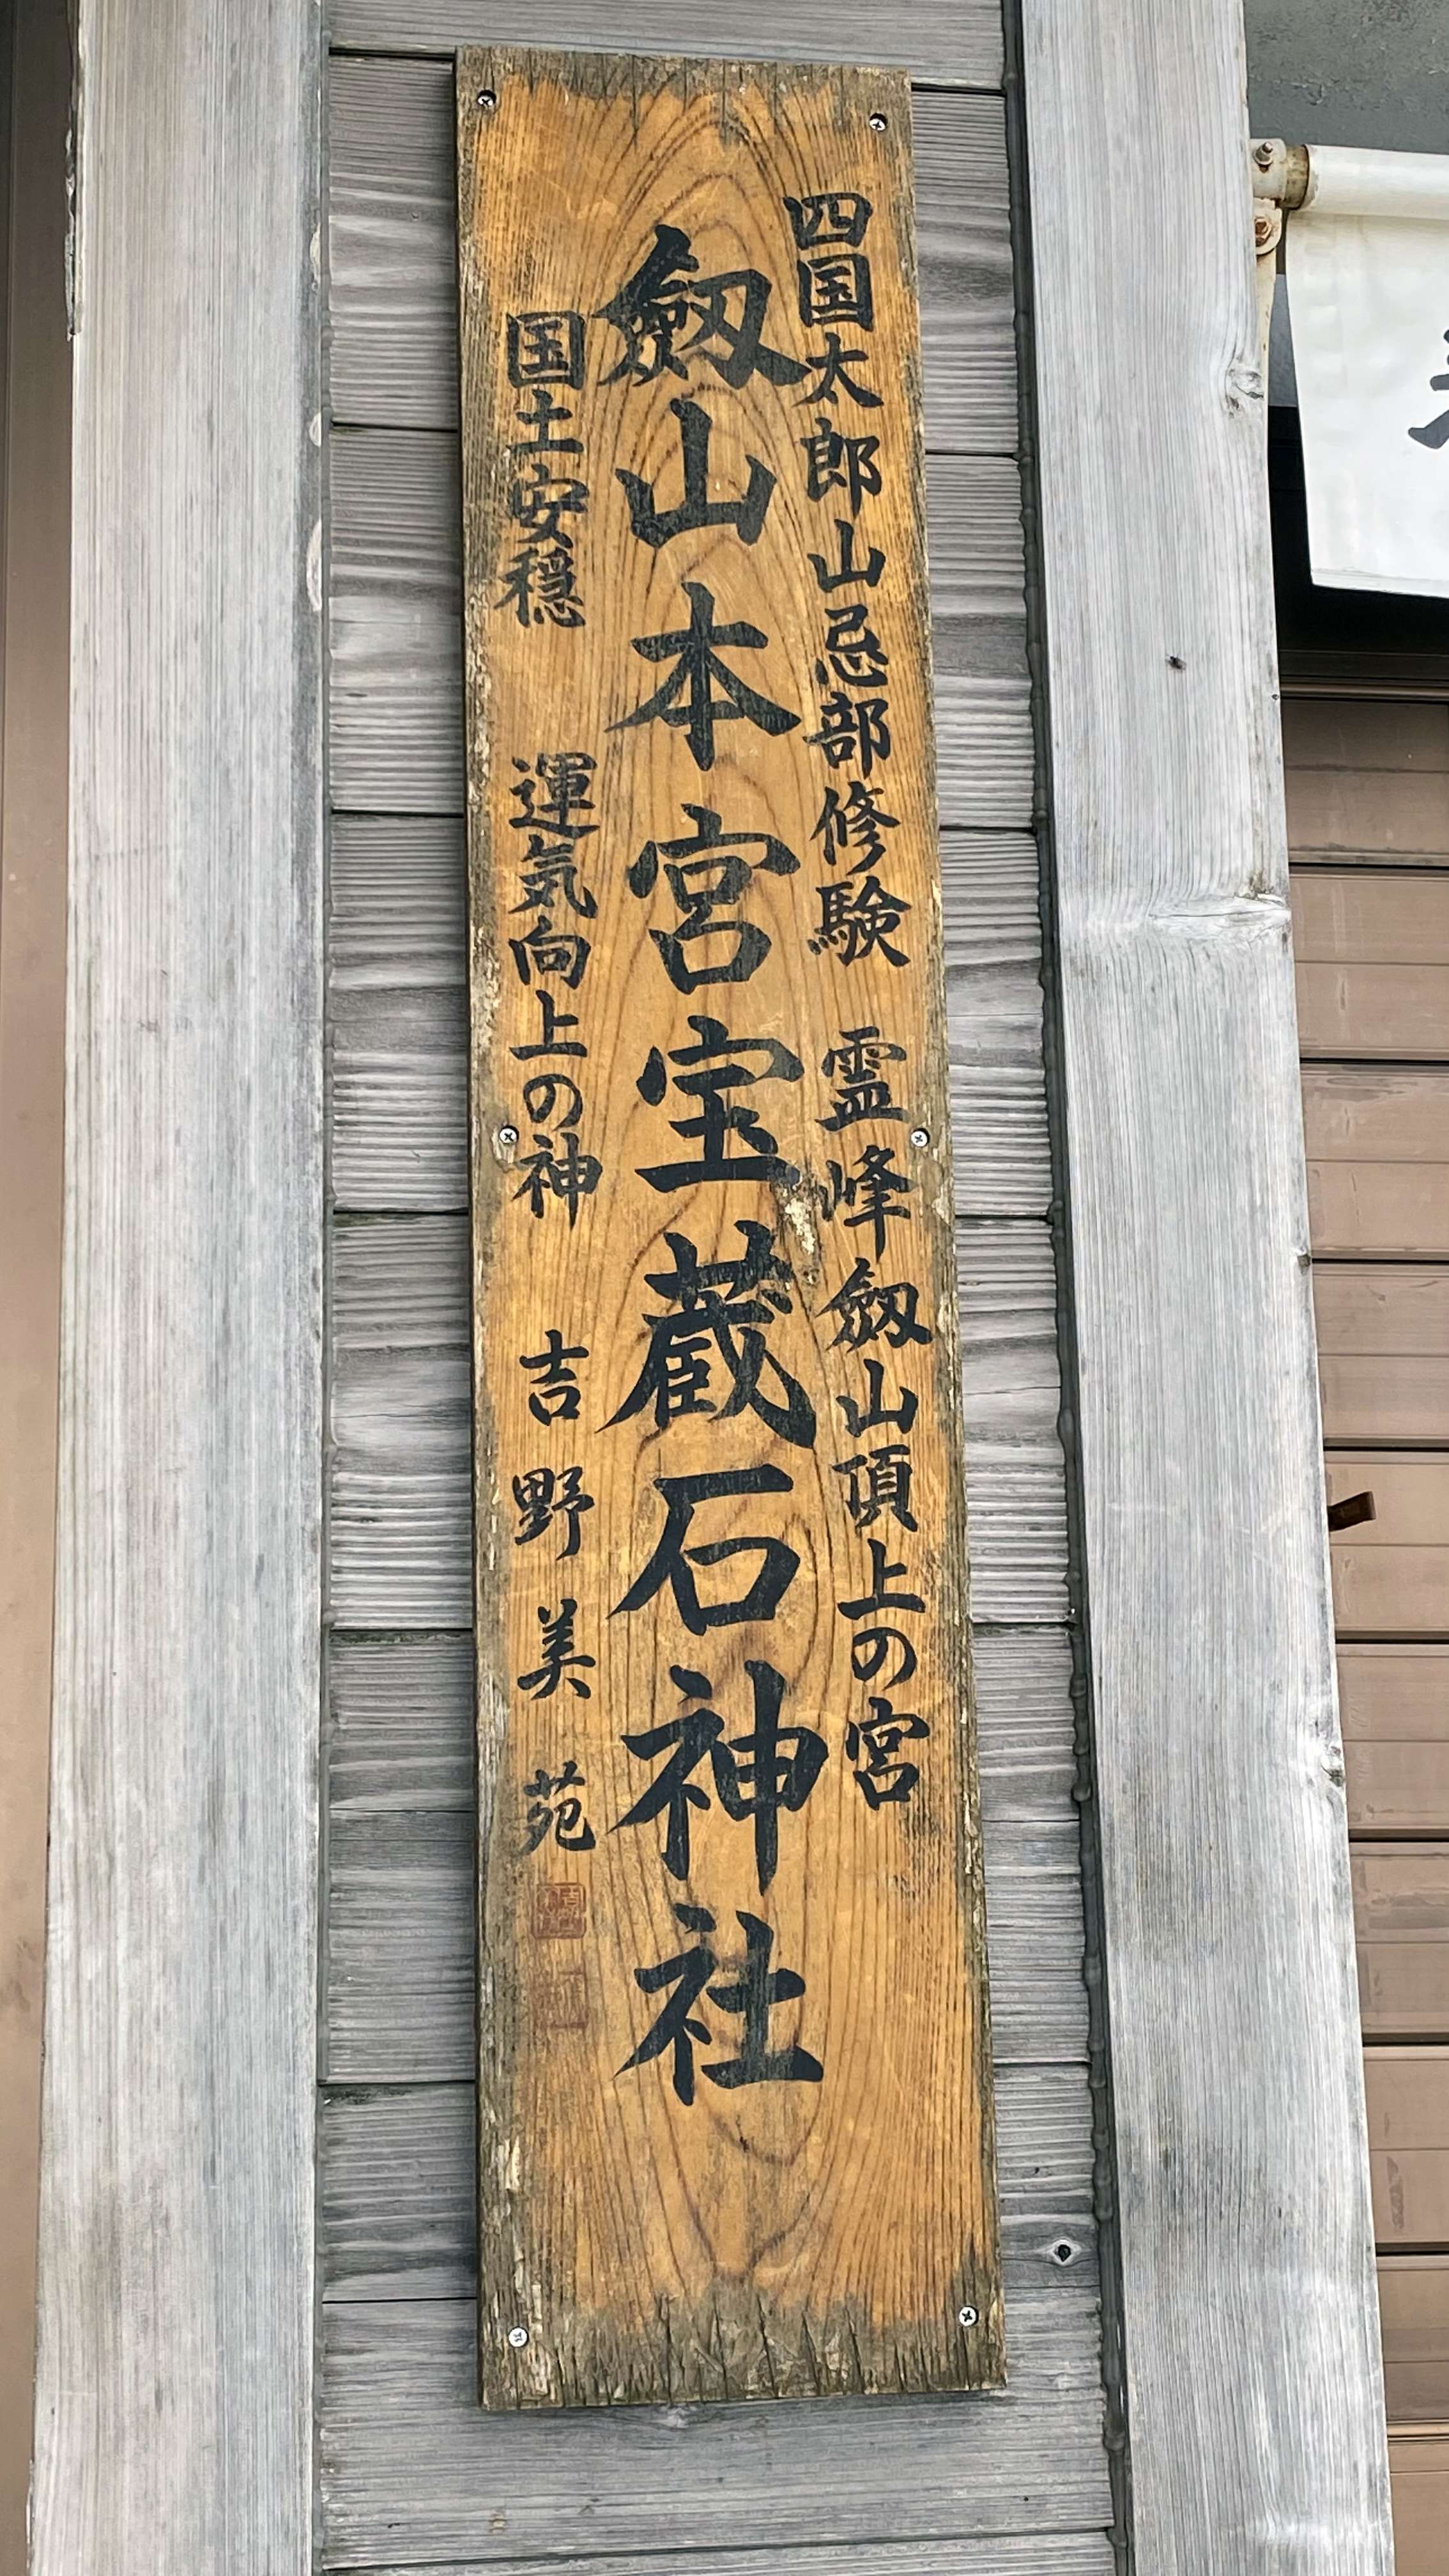 四国太郎山忌部修験 霊峰劔山頂上の宮
劔山本宮宝蔵石神社
国土安穏 運気向上の神 吉野美苑